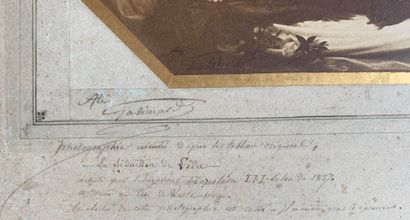 Ate
Galimard
photographie exécutée d'après le tableau original,
La Séduction de Léda
acheté par l'Empereur Napoléon III. Salon de 1857
et donné au Roi de Wurtemberg.
le cliché de cette photographie est cassé